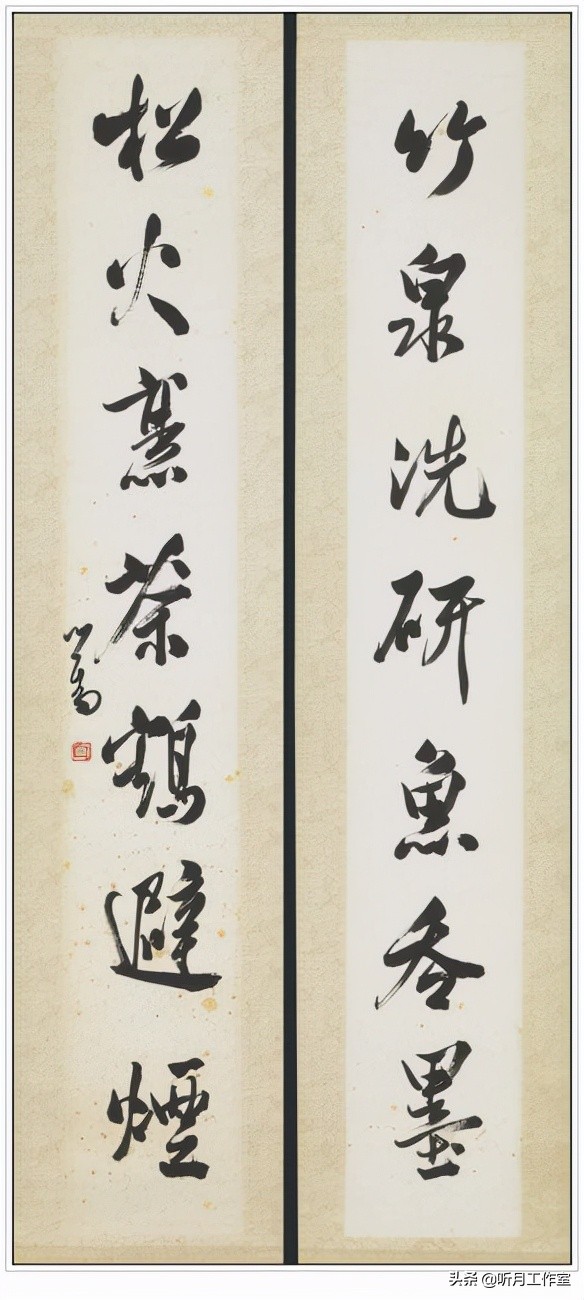 竹泉洗研魚吞墨
松火茶鶴避煙
心畬
头条 @听月工作室